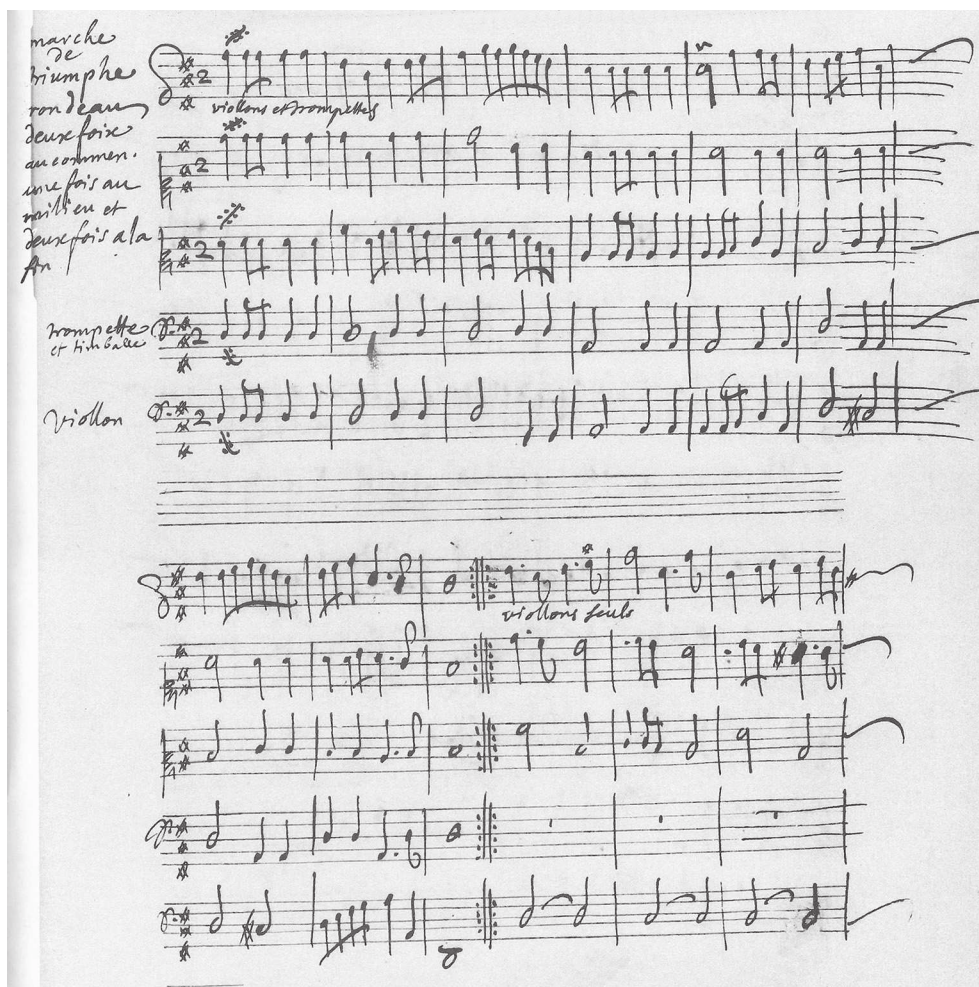 marche
de
triumphe
rondeau
deux foix
au commen.
une fois au
milieu et
deux fois a la
fin
viollons et trompettes
trompette
et timballe
viollon
viollons seuls